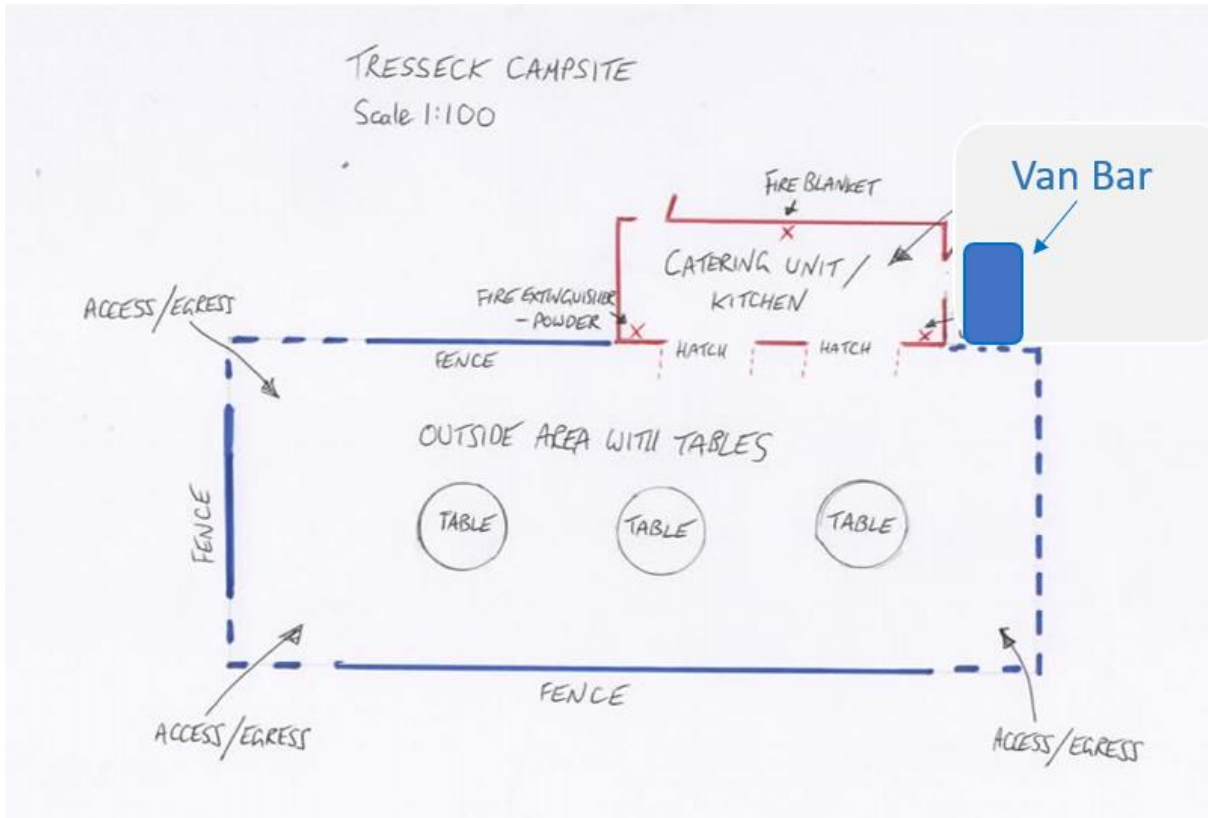 TRESSECK CAMPSITE
Scale 1:100
Van Bar
FIRE BLANKET
CATERING UNIT /
KITCHEN
ACCESS/EGRESS
FIRE EXTINGUISHER
- POWDER
FENCE
HATCH
HATCH
OUTSIDE AREA WITH TABLES
FENCE
TABLE
TABLE
TABLE
FENCE
ACCESS/EGRESS
ACCESS/EGRESS